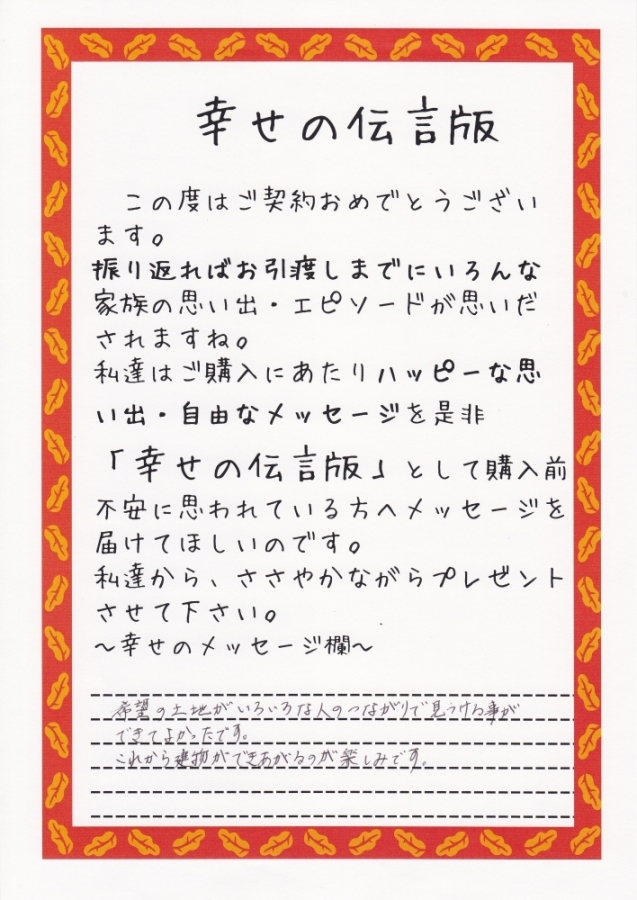 幸せの伝言版
この度はご契約おめでとうござい
ます。
振り返ればお引渡しまでにいろんな
家族の思い出・エピソードが思いだ
されますね。
私達はご購入にあたりハッピーな思
い出・自由なメッセージを是非
「幸せの伝言版」として購入前
不安に思われている方へメッセージを
届けてほしいのです。
私達から、ささやかながらプレゼント
させて下さい。
～幸せのメッセージ欄～
希望の土地がいろいろな人のつながりで見つける事が
できてよかったです。
これから建物ができあがるのが楽しみです。